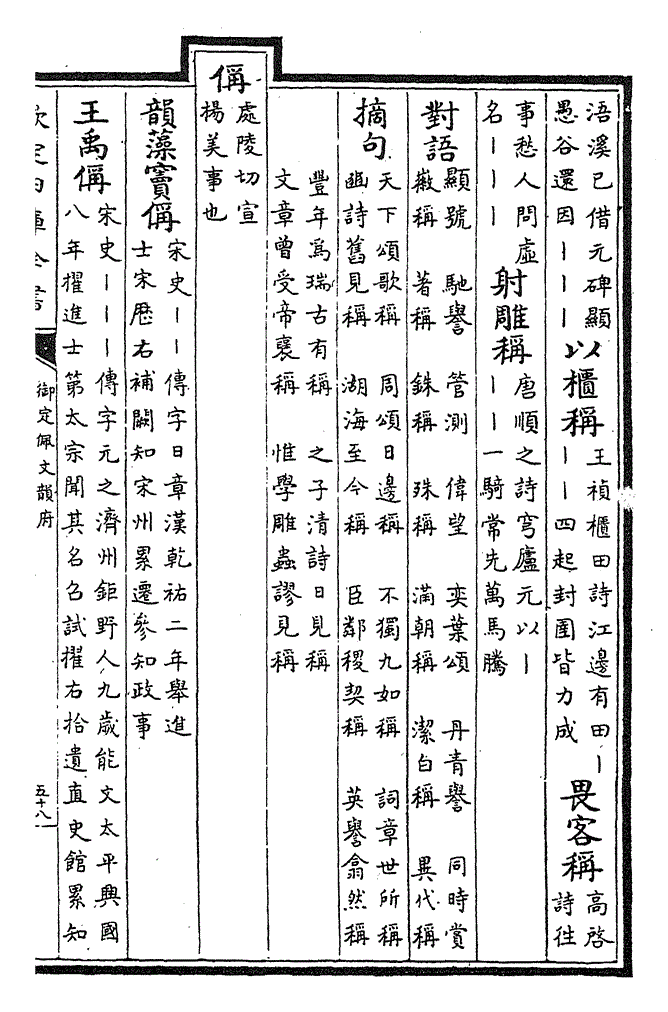 浯溪已借元碑顯愚谷還因丨丨丨以櫃稱王禎櫃田詩江邊有田丨丨丨四起封圍皆力成畏客稱高啓詩徃
事愁人問虛名丨丨丨射雕稱唐順之詩穹廬元以丨丨丨一騎常先萬馬騰
對語顯號徽稱 馳譽著稱 管測銖稱 偉望殊稱 奕葉頌滿朝稱 丹青譽潔白稱 同時賞異代稱
摘句天下頌歌稱豳詩舊見稱 周頌日邊稱湖海至今稱 不獨九如稱臣鄰稷契稱 詞章世所稱英譽翕然稱
豐年爲瑞古有稱文章曾受帝褒稱 之子清詩日見稱惟學雕蟲謬見稱
偁處陵切宣揚美事也
韻藻竇偁宋史丨丨傳字日章漢乾祐二年舉進士宋歴右補闕知宋州累遷參知政事
王禹偁宋史丨丨丨傳字元之濟州鉅野人九歲能文太平興國八年擢進士第太宗聞其名召試擢右拾遺直史館累知
欽定四庫全書
御定佩文韻府
五十八